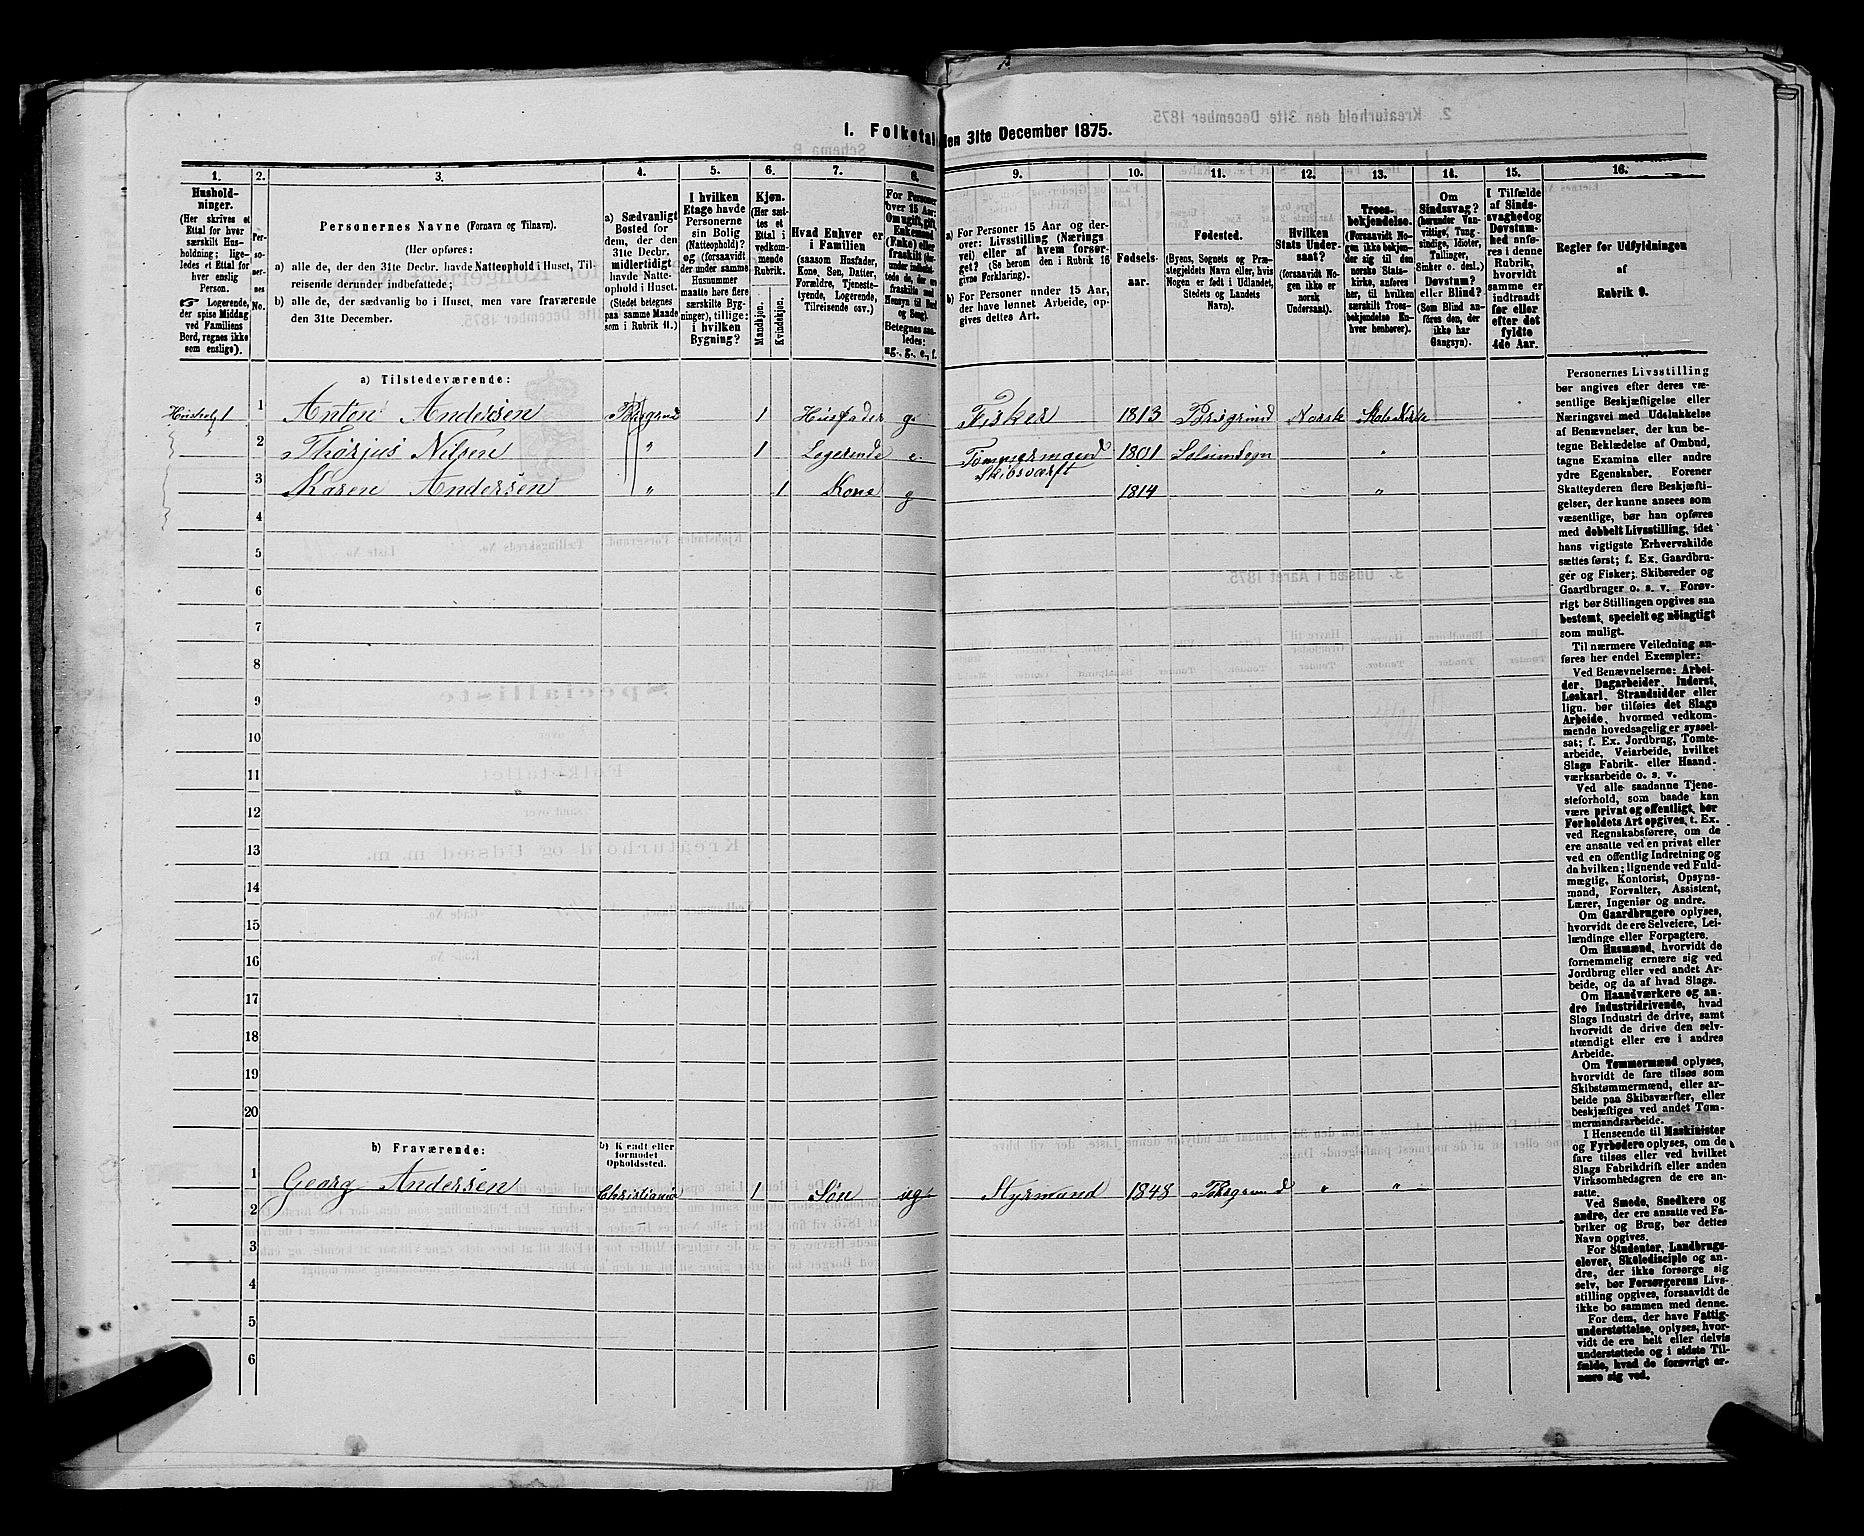 I. Folketal
den 31te December 1875.
1.
2.
3.
4.
5.
6.
7.
8.
9.
10.
11.
12.
13.
14.
15.
16.
Hushold-
ninger.
(Her skrives et
Ettal for hver
særskilt Hus-
holdning; lige-
ledes et Ettal for
hver enslig
Person.
☞ Logerende,
der spise Middag
ved Familiens
Bord, regnes ikke
som enslige).
Per-
so-
ner-
nes
No.
Personernes Navne (Fornavn og Tilnavn).
(Her opføres:
a) alle de, der den 31te Decbr. havde Natteophold i Huset, Til-
reisende derunder indbefattede;
b) alle de, der sædvanlig bo i Huset, men vare fraværende
den 31te December.
a) Sædvanligt
Bosted for
dem, der den
31te Decbr.
midlertidigt
havde Natte-
ophold i Huset.
(Stedet betegnes
paa samme Maade
som i Rubrik 11.)
I hvilken
Etage havde
Personerne
sin Bolig
(Natteophold)?
og (forsaavidt
der under samme
Husnummer
maatte høre flere
særskilte Byg-
ninger), tillige:
i hvilken
Bygning?
Kjøn.
(Her sæt-
tes et
Ettal i
vedkom-
mende
Rubrik.
Mandkjøn.
Kvindekjøn.
Hvad Enhver er
i Familien
(saasom Husfader,
Kone, Søn, Datter,
Forældre, Tjeneste-
tyende, Logerende,
Tilreisende osv.)
For Personer
over 15 Aar:
Om ugift, gift,
Enkemand
(Enke) eller
fraskilt
Betegnes saa-
ledes:
ug., g., e., f.
a) For Personer 15 Aar og der-
over: Livsstilling (Nærings
vei) eller af hvem forsør-
get? (Se herom den i Rubrik 16
givne Forklaring).
b) For Personer under 15 Aar,
der have lønnet Arbeide, op-
gives dettes Art.
Fødsels-
aar.
Fødested.
(Byens, Sognets og Præ-
stegjeldets Navn eller, hvis
Nogen er født i Udlandet,
Stedets og Landets
Navn).
Hvilken
Stats Under-
saat?
(forsaavidt No-
gen ikke er
norsk
Undersaat).
Troes-
bekjendelse.
(Forsaavidt No-
gen ikke bekjen-
der sig til den
norske Stats-
kirke, anføres
her, til hvilken
særskilt Troes-
bekjendelse En-
hver henhører).
Om
Sindssvag?
(herunder Van-
vittige, Tung-
sindige, Idioter,
Tullinger,
Sinker o. desl.)
Døvstum?
eller Blind?
(Som Blind an-
føres den, der
ikke har
Gangsyn).
I Tilfælde
af Sinds-
svaghed og
Døvstum-
hed anfø-
res i denne
Rubrik,
hvorvidt
samme er
indtraadt
før eller
efter det
fyldte
4de Aar.
Regler for Udfyldningen
af
Rubrik 9.
a) Tilstedeværende:
1 1 Anton Andersen Porsgrund 1 Husfader g. Fisker 1813 Porsgrund Norsk Statskirke
2 Thorjus Nilsen " 1 Logerende e Tømmermand 1801 Solumsogn "
Skibsværft
3 Karen Andersen " 1 Kone g 1814 "
4
5
6
7
8
9
10
11
12
13
14
15
16
17
18
19
20
b) Fraværende:
b) Kjendt eller
formodet
Opholdssted.
1 Georg Andersen Christiania 1 Søn ug. Styrmand 1848 Porsgrund " "
2
3
4
5
6
Personernes Livsstilling
bør angives efter deres væ-
sentlige Beskjæftigelse eller
Næringsvei med Udelukkelse
af Benævnelser, der kun be-
tegne Beklædelse af Ombud,
tagne Examina eller andre
ydre Egenskaber. Forener
Skatteyderen flere Beskjæfti-
gelser, der kunne ansees som
væsentlige, bør han opføres
med dobbelt Livsstilling, idet
hans vigtigste Erhvervskilde
sættes først; f. Ex. Gaardbru-
ger og Fisker; Skibsreder og
Gaardbruger o. s. v. Forøv-
rigt bør Stillingen opgives saa
bestemt, specielt og nøiagtigt
som muligt.
Til nærmere Veiledning an-
føres her endel Exempler:
Ved Benævnelserne: Arbei-
der, Dagarbeider, Inderst,
Løskarl, Strandsidder eller
lign. bør tilføies det Slags
Arbeide, hvormed vedkom-
mende hovedsagelig er syssel-
sat; f. Ex. Jordbrug, Tomte-
arbeide, Veiarbeide, hvilket
Slags Fabrik- eller Haand-
værksarbeide o. s. v.
Ved alle saadanne Tjene-
steforhold, som baade kan
være privat og offentligt, bør
Forholdets Art opgives, t. Ex.
ved Regnskabsførere, om de
ere ansatte ved en privat eller
ved en offentlig Indretning og
da hvilken; lignende ved Fuld-
mægtig, Kontorist, Opsyns-
mand, Forvalter, Assistent,
Lærer, Ingeniør og andre.
Om Gaardbrugere oplyses,
hvorvidt de ere Selveiere, Lei-
lændinge eller Forpagtere.
Om Husmænd, hvorvidt de
fornemmelig ernære sig ved
Jordbrug eller ved andet Ar-
beide, og da af hvad Slags.
Om Haandværkere og an-
dre Industridrivende, hvad
Slags Industri de drive, samt
hvorvidt de drive den selv-
stændigt eller ere i andres
Arbeide.
Om Tømmermænd oplyses,
hvorvidt de fare tilsøs som
Skibstømmermænd, eller ar-
beide paa Skibsværfter, eller
beskjæftiges ved andet Tøm-
mermandsarbeide.
I Henseende til Maskinister
og Fyrbødere oplyses, om de
fare tilsøs eller ved hvilket
Slags Fabrikdrift eller anden
Virksomhedsgren de ere an-
satte.
Ved Smede, Snedkere og
andre, der ere ansatte ved Fa-
briker og Brug, bør dettes
Navn opgives.
For Studenter, Landbrugs-
elever, Skoledisciple og an-
dre, der ikke forsørge sig
selv, bør Forsørgerens Livs-
stilling opgives, forsaavidt de
ikke bo sammen med denne.
For dem, der have Fattig-
understøttelse, oplyses, hvor-
vidt de ere helt eller delvis
understøttede og i sidste Til-
fælde, hvad de forøvrigt er-
nære sig ved.